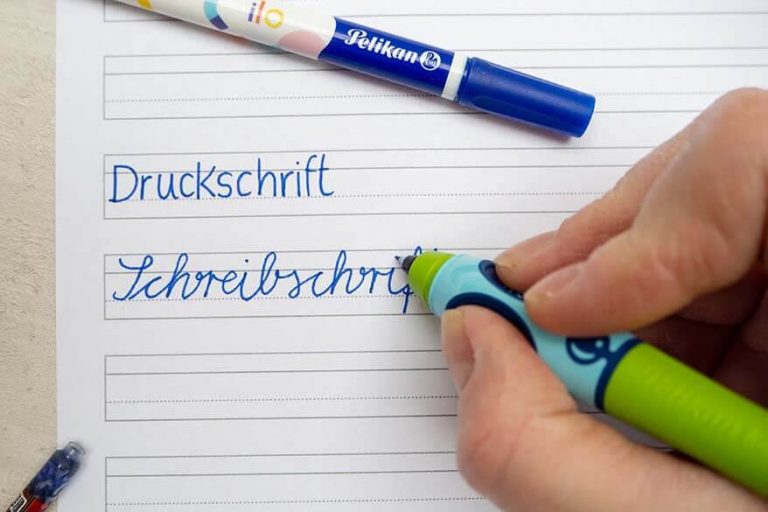 ilo
Pelikan
Druckschrift
Schreibschrift